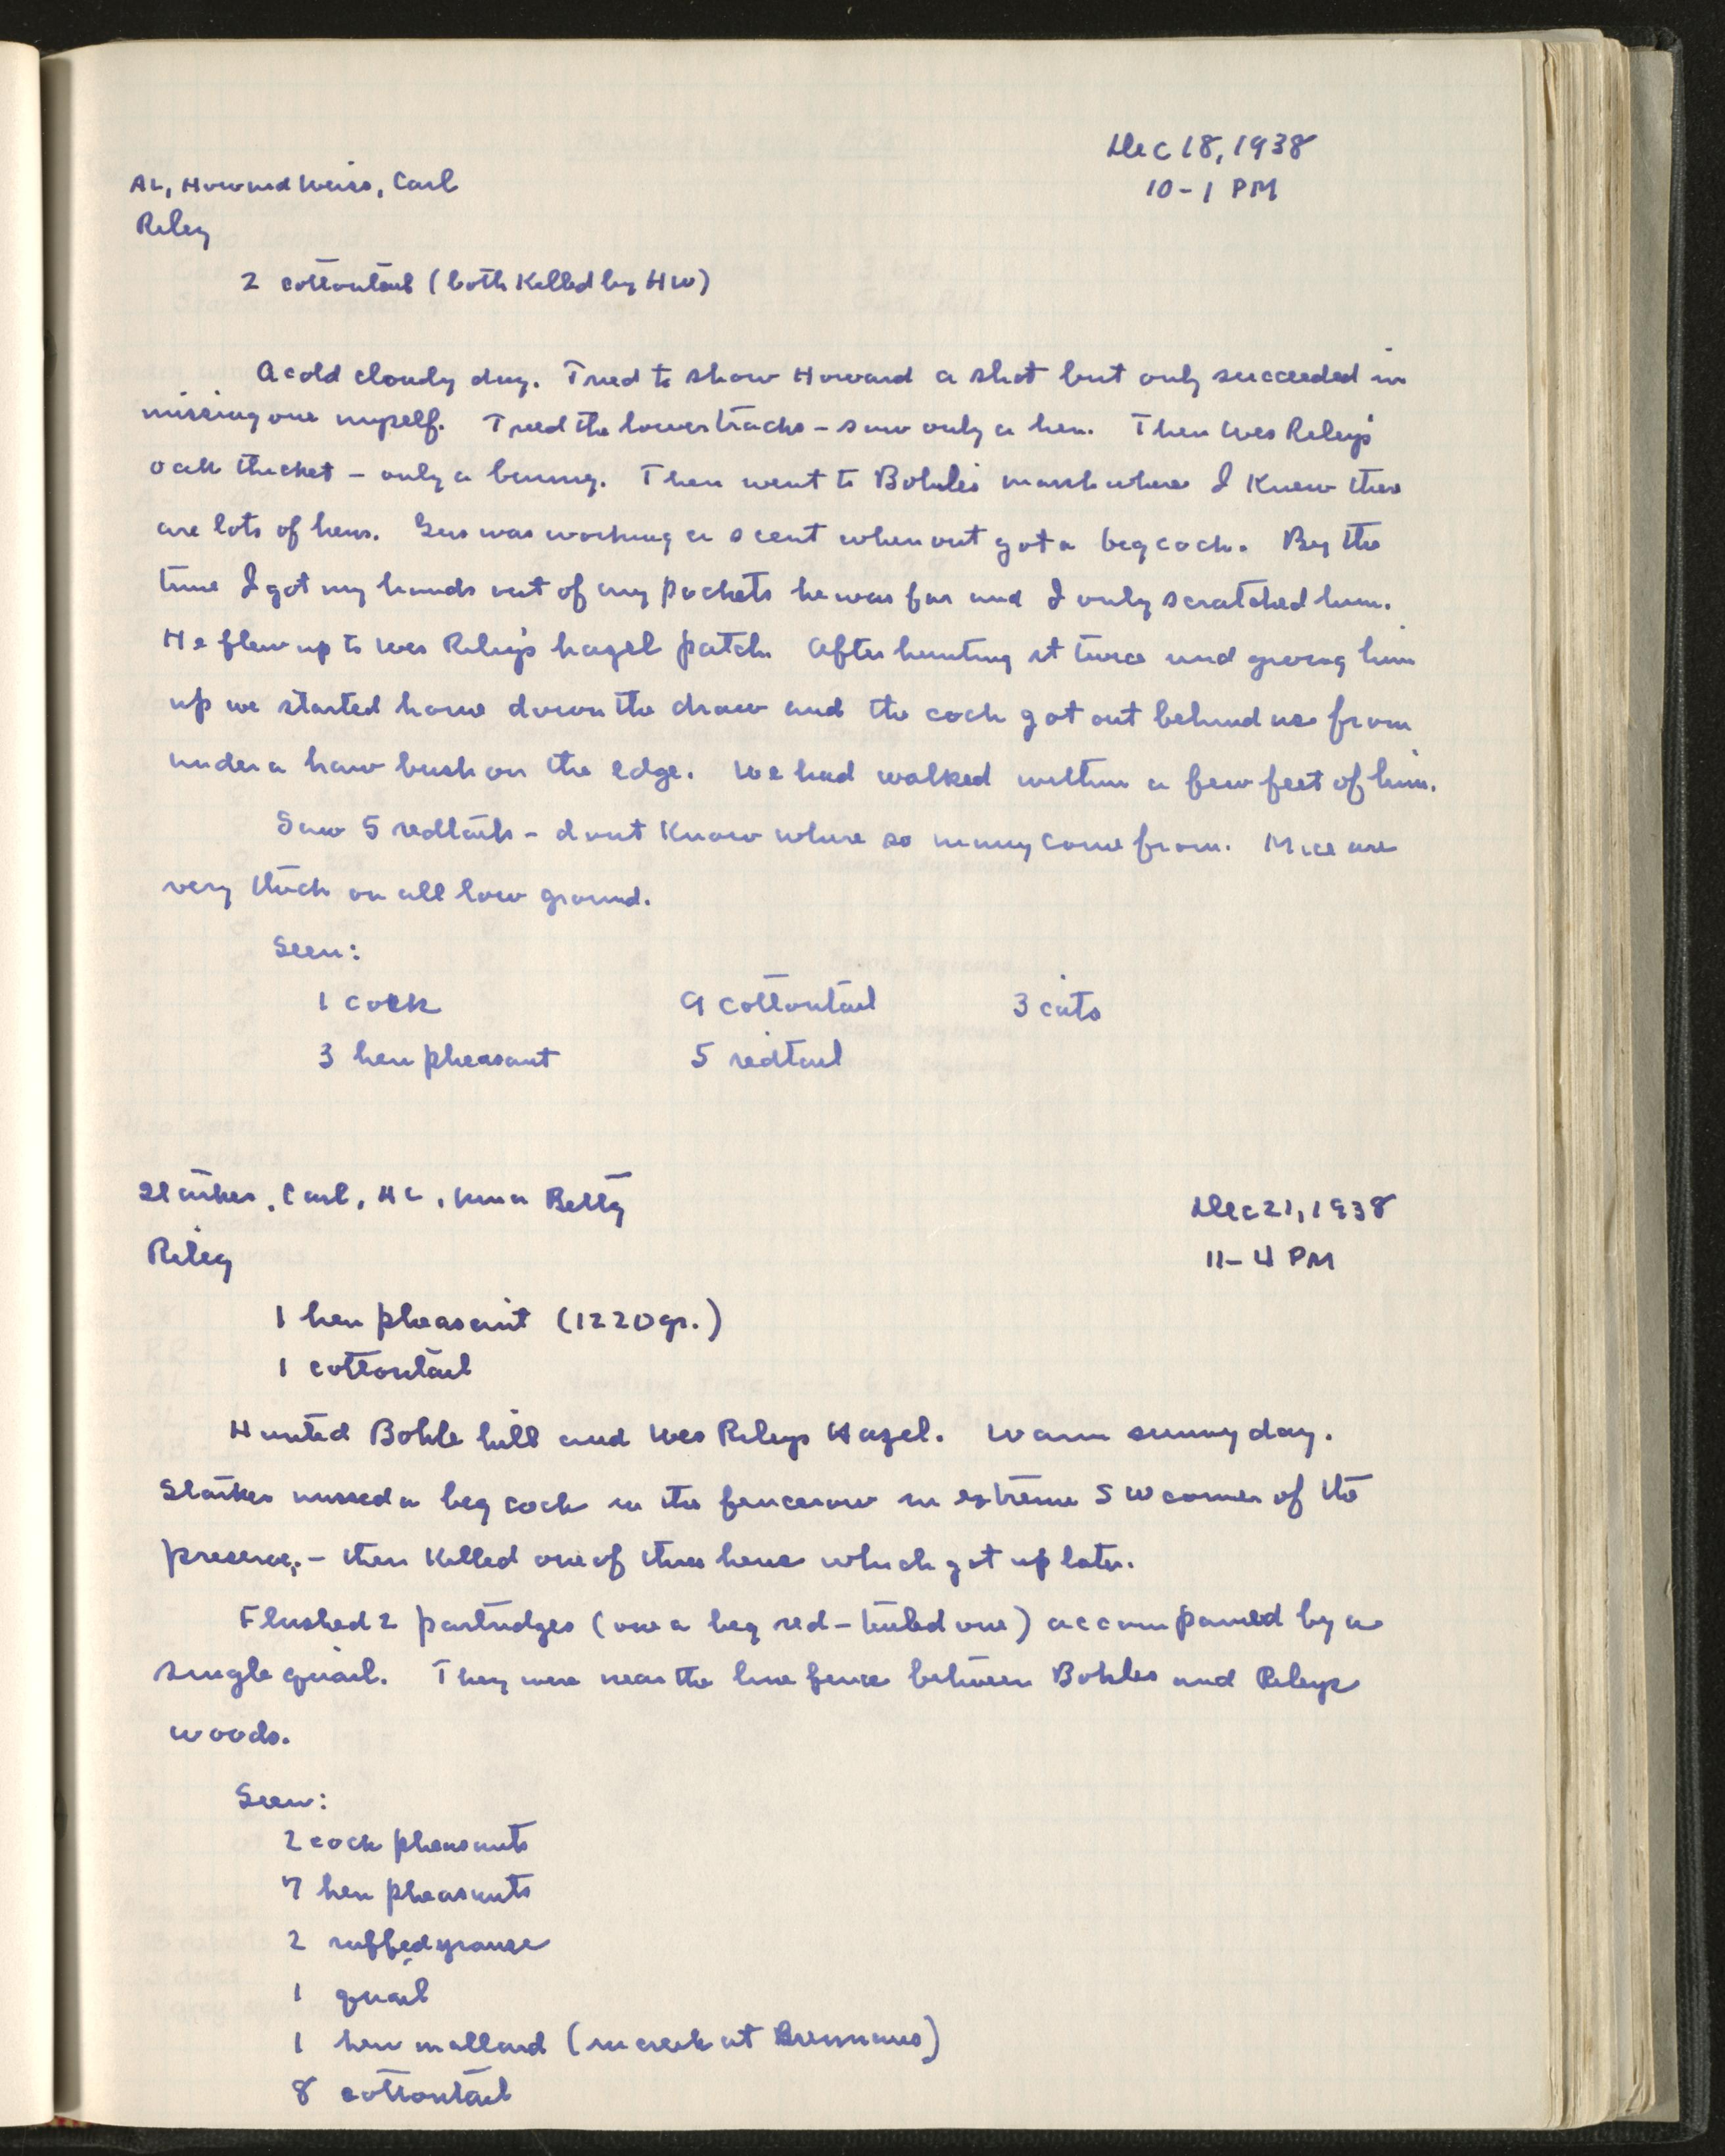 Dec 18, 1938
AL, Howard Weiss, Carl
10-1 PM
Riley
2 cottontail (both killed by HW)
A cold cloudy day. Tried to show Howard a shot but only succeeded in
missing one myself. Tried the lower tracks - saw only a hen. Then Wes Riley's
oak thicket - only a bunny. Then went to Bohle's marsh where I know there
are lots of hens. Gus was working a scent when out got a big cock. By the
time I got my hands out of my pockets he was far and I only scratched him.
He flew up to Wes Riley's hazel patch. After hunting it twice and giving him
up we started home down the draw and the cock got out behind us from
under a haw bush on the edge. We had walked within a few feet of him.
Saw 5 redtails - dont know where so many come from. Mice are
very thick on all low ground.
Seen:
1 cock 9 cottontail 3 cats
3 hen pheasant 5 redtail
Starker, Carl, Betty
Dec 21, 1938
Riley
11-4 PM
1 hen pheasant (1220 gr.)
1 cottontail
Hunted Bohle hill and Wes Rileys Hazel. Warm sunny day.
Starker missed a big cock in the fencerow in extreme SW corner of the
preserve, - then killed one of three hens which got up later.
Flushed 2 partridges (one a big red-tailed one) accompanied by a
single quail. They were near the line fence between Bohles and Rileys
woods.
Seen:
2 cock pheasants
7 hen pheasants
2 ruffed grouse
1 quail
1 hen mallard (in creek at Brennans)
8 cottontail